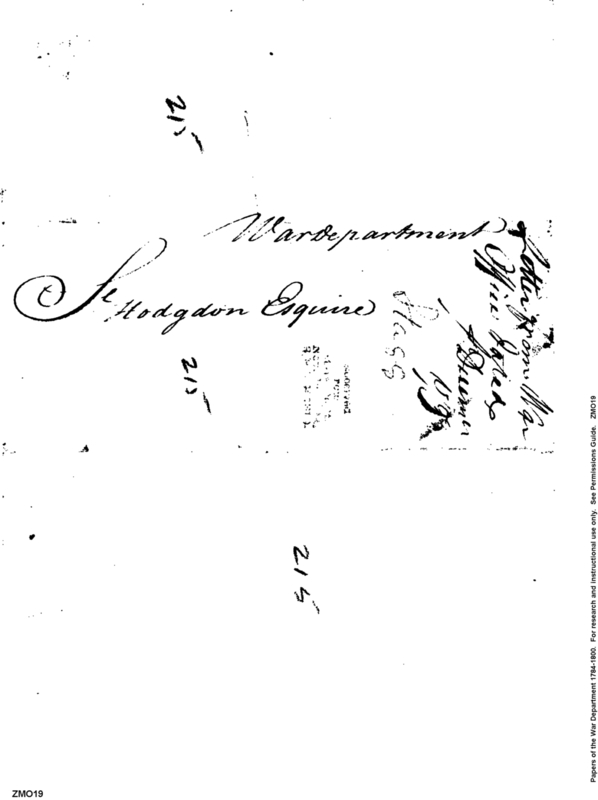 215
War department
Sl Hodgdon Esquire
Letter from War
Office dated
Stagg
215
215
Papers of the War Department 1784-1800. For research and instructional use only. See Permissions Guide. ZMO19
ZMO19